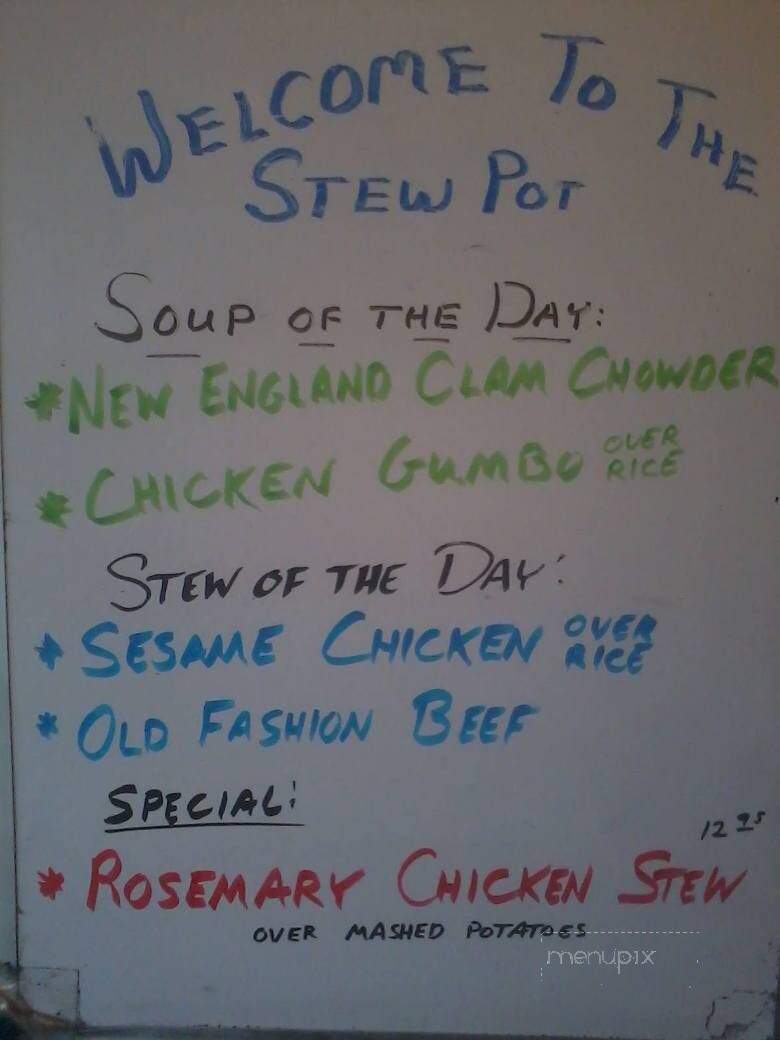 WELCOME TO THE
STEW POT
SOUP OF THE DAY:
*NEW ENGLAND CLAM CHOWDER
* CHICKEN GUMBO OVER RICE
STEW OF THE DAY:
* SESAME CHICKEN OVER RICE
* OLD FASHION BEEF
SPECIAL:
12 95
* ROSEMARY CHICKEN STEW
OVER MASHED POTATOES
menupix